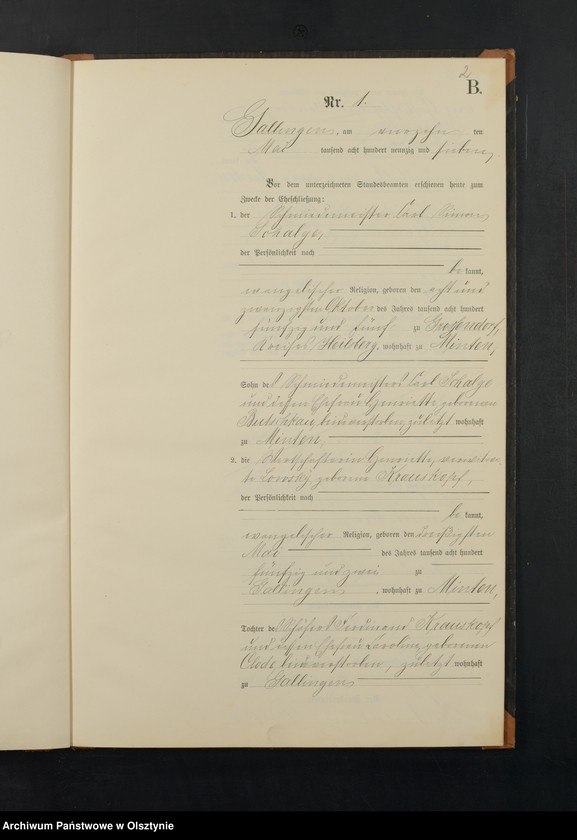 2
B.
Nr. 1.
Gallingen, am vierzehnten
Mai tausend acht hundert neunzig und sieben.
Vor dem unterzeichneten Standesbeamten erschienen heute zum
Zwecke der Eheschließung:
1. der Schmiedemeister Carl Simon
Schalge,
der Persönlichkeit nach
be kannt,
evangelischer Religion, geboren den acht und
zwanzigsten Oktober des Jahres tausend acht hundert
fünfzig und fünf zu
Kreises Heilsberg, wohnhaft zu Minten,
Sohn des Schmiedemeisters Carl Schalge
und dessen Ehefrau Henriette geborenen
beide verstorben, zuletzt wohnhaft
zu Minten,
2. die Wirtschafterin Henriette, verwitwe-
te geborene Krauskopf,
der Persönlichkeit nach
be kannt,
evangelischer Religion, geboren den dreißigsten
Mai des Jahres tausend acht hundert
fünfzig und zwei zu
Gallingen, wohnhaft zu Minten,
Tochter des Schäfers Ferdinand Krauskopf
und dessen Ehefrau Karoline geborenen
beide verstorben, zuletzt wohnhaft
zu Gallingen
Archiwum Państwowe w Olsztynie